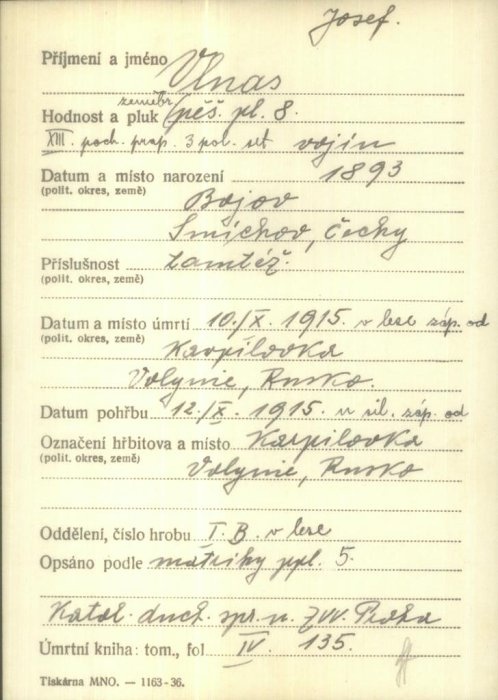 Josef.
Příjmení a jméno Vlnas
zeměbr.
Hodnost a pluk pěš. pl. 8.
XIII. poch. prap. 3 pol. set vojín
Datum a místo narození 1893
(polit. okres, země)
Bojov
Smíchov, Čechy
Příslušnost tamtéž.
(polit. okres, země)
Datum a místo úmrtí 10./X. 1915. v lese záp. od
(polit. okres, země)
Karpilovka
Volynie, Rusko.
Datum pohřbu 12./X. 1915. u sil. záp. od
Označení hřbitova a místo Karpilovka
(polit. okres, země)
Volynie, Rusko
Oddělení, číslo hrobu I. B. v lese
Opsáno podle matriky ppl. 5.
Katol. duch. spr. n. ZVV. Praha
Úmrtní kniha: tom., fol IV. 135.
Tiskárna MNO. — 1163-36.